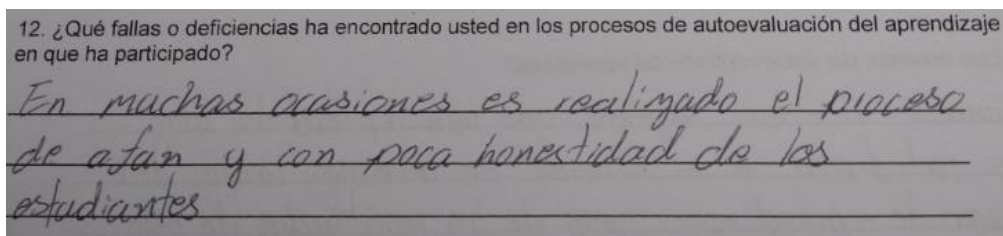 12. ¿Qué fallas o deficiencias ha encontrado usted en los procesos de autoevaluación del aprendizaje
en que ha participado?
En muchas ocasiones es realizado el proceso
de afan y con poca honestidad de los
estudiantes